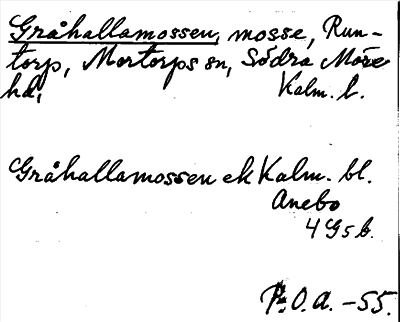 Gråhallamossen, mosse, Run-
torp, Mortorps sn, Södra Möre
hd, Kalm. l.
Gråhallamossen ek Kalm. bl.
Anebo
4 G 5 b.
P.O.A. -55.